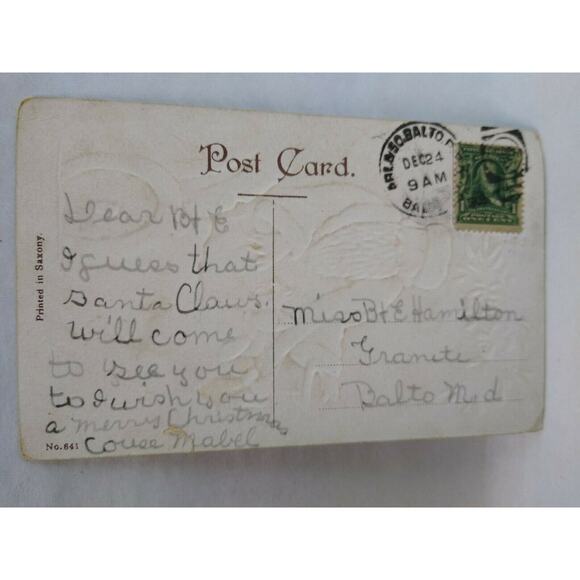 Post Card.
Dear B&E
I guess that
Santa Claus.
will come
to see you
to I wish you
a merry Christmas
Couse Mabel
Miss B&E Hamilton
Granite
Balto Md
Printed in Saxony.
No. 641
BALTO.
DEC 24
9 AM